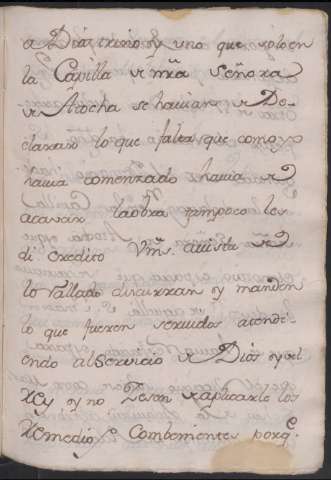 a Dios trino y uno que solo en
la Capilla de nra Señora
de Atocha se havian de De-
clarar lo que falta que como yo
havia comenzado havia de
acavar la obra tampoco les
di credito Vms. a vista de
lo Tallado discurran y manden
lo que fueren servidos atendi-
endo al Servicio de Dios y del
Rey y no Dejen de aplicarle los
Remedios Combenientes porqe